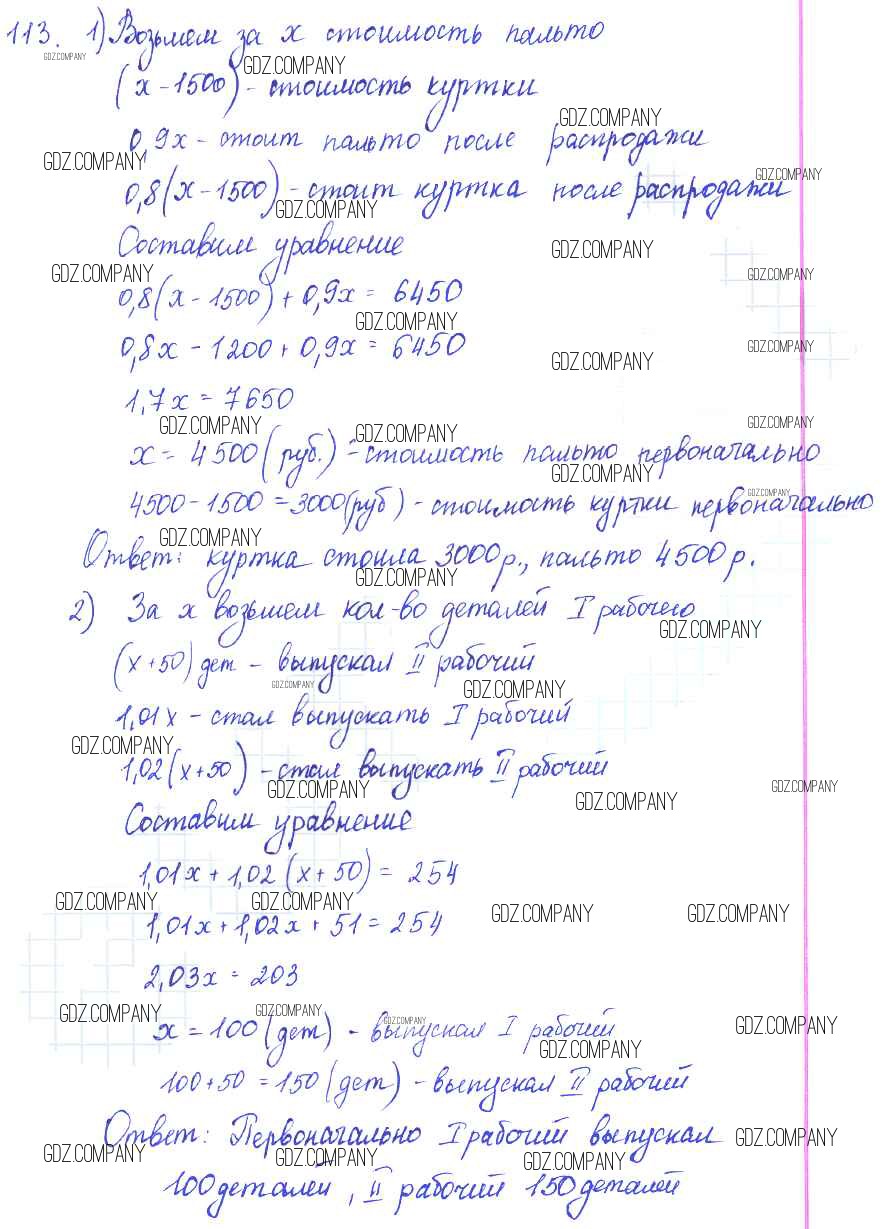 113. 1) Возьмем за x стоимость пальто
GDZ.COMPANY GDZ.COMPANY
(x-1500) - стоимость куртки
GDZ.COMPANY
0,9x - стоит пальто после распродажи
GDZ.COMPANY GDZ.COMPANY
0,8(x-1500) - стоит куртка после распродажи
GDZ.COMPANY
Составим уравнение
GDZ.COMPANY
GDZ.COMPANY GDZ.COMPANY
0,8(x-1500)+0,9x = 6450
GDZ.COMPANY
0,8x - 1200 + 0,9x = 6450
GDZ.COMPANY GDZ.COMPANY
1,7x = 7650
GDZ.COMPANY GDZ.COMPANY GDZ.COMPANY
x = 4500 (руб.) - стоимость пальто первоначально
GDZ.COMPANY GDZ.COMPANY
4500-1500 = 3000(руб) - стоимость куртки первоначально
GDZ.COMPANY
Ответ: куртка стоила 3000р., пальто 4500р.
GDZ.COMPANY
2) За x возьмем кол-во деталей I рабочего
GDZ.COMPANY
(x+50) дет - выпускал II рабочий
GDZ.COMPANY GDZ.COMPANY
1,01x - стал выпускать I рабочий
GDZ.COMPANY
1,02(x+50) - стал выпускать II рабочий
GDZ.COMPANY GDZ.COMPANY GDZ.COMPANY
Составим уравнение
1,01x + 1,02(x+50) = 254
GDZ.COMPANY GDZ.COMPANY GDZ.COMPANY GDZ.COMPANY
1,01x+1,02x + 51 = 254
2,03x = 203
GDZ.COMPANY GDZ.COMPANY GDZ.COMPANY GDZ.COMPANY
x = 100 (дет) - выпускал I рабочий
GDZ.COMPANY
100+50 = 150 (дет) - выпускал II рабочий
Ответ: Первоначально I рабочий выпускал
GDZ.COMPANY GDZ.COMPANY GDZ.COMPANY GDZ.COMPANY
100 деталей, II рабочий 150 деталей